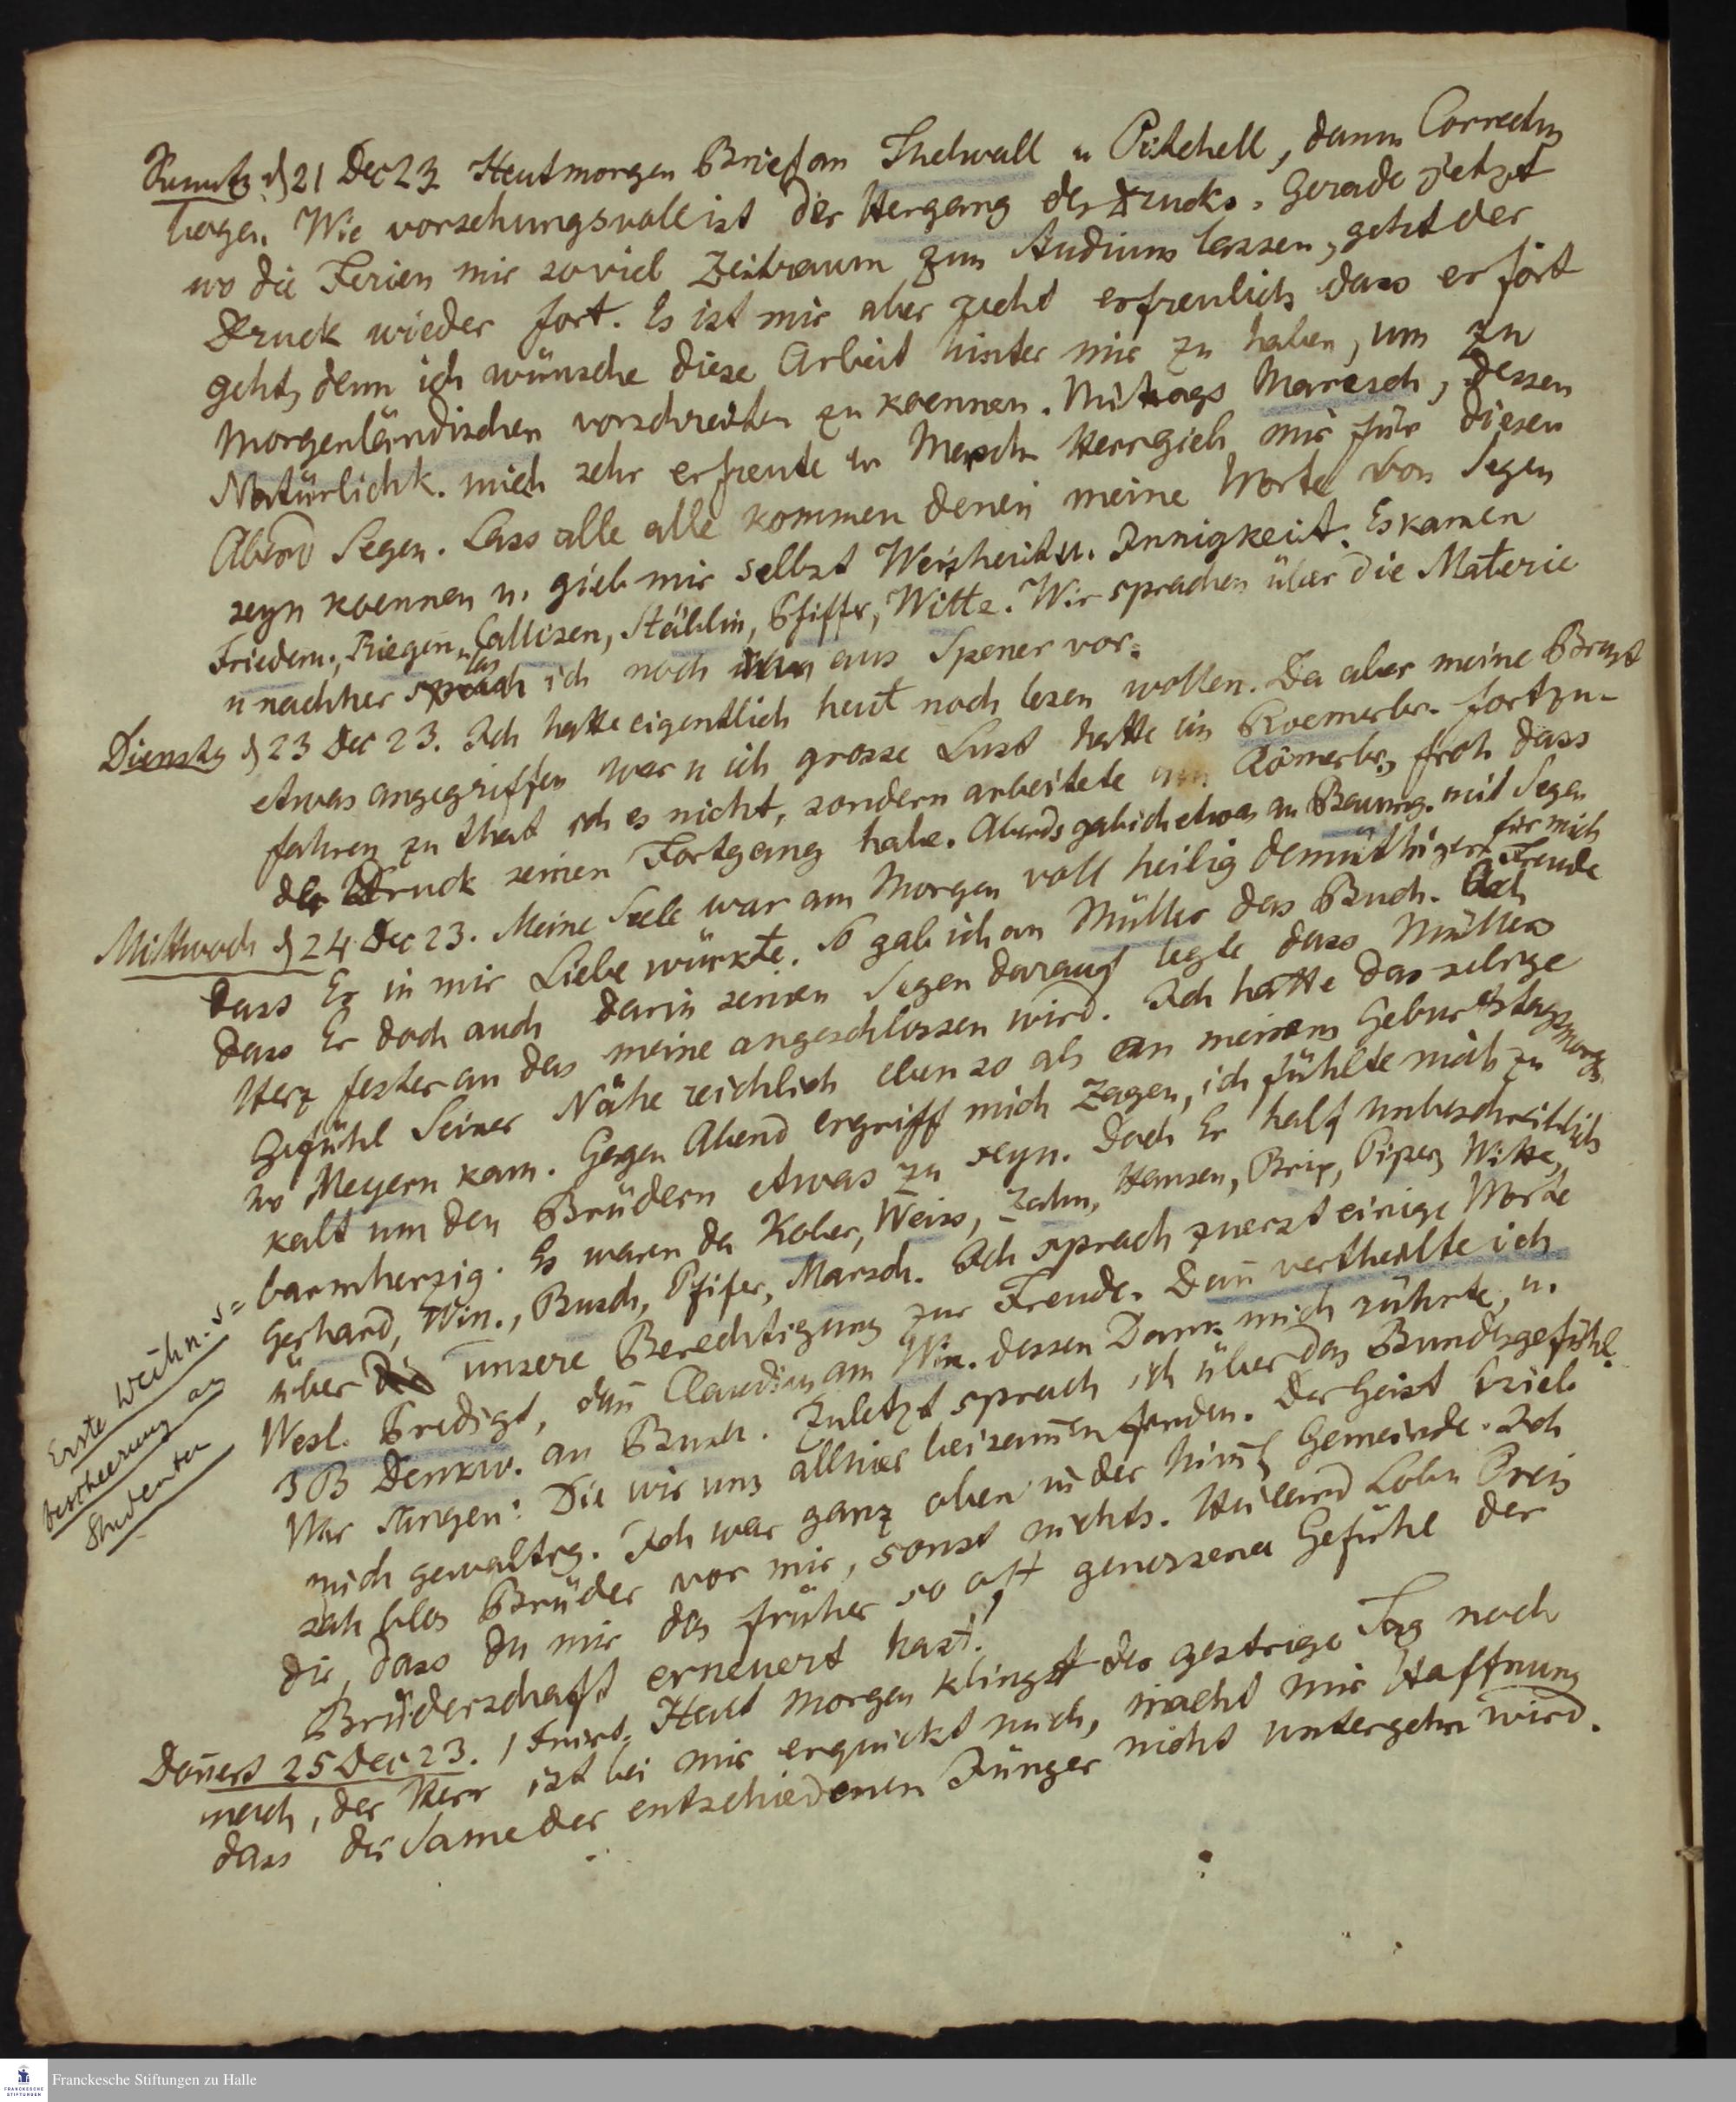 Sonntg d 21 Dec 23 Heut morgen Brief an Thelwall u Pitchell, dann Correctur
bogen. Wie vorsehungsvoll ist der Hergang des Drucks. Gerade jetzt
wo die Ferien mir so viel Zeitraum zum Studium lassen, geht der
Druck wieder fort. Es ist mir aber recht erfreulich dass er fort
geht, denn ich wünsche diese Arbeit hinter mir zu haben, um zu
Morgenländischen vorschreiten zu koennen. Mittags Maresch, dessen
Natürlichk. mich sehr erfreute Herr gieb mir für diesen
Abend Segen. Lass alle alle kommen denen meine Worte von Segen
seyn koennen u. gieb mir selbst Weisheit u. Innigkeit. Es kamen
Friedem., Riegen, Callisen, Stählin, Pfiffr, Witte. Wir sprachen über die Materie
u nachher las ich noch aus Spener vor.
Dienstg d 23 Dec 23. Ich hatte eigentlich heut noch lesen wollen. Da aber meine Brust
etwas angegriffen war u ich grosse Lust hatte im Roemerbr. fortzu-
fahren zu that ich es nicht, sondern arbeitete am Römerbr, froh dass
der Druck seinen Fortgang habe. Abends gab ich etwas an Baumg. mit Segen
für mich
Mittwoch d 24 Dec 23. Meine Seele war am Morgen voll heilig demüthiger Freude
dass Er in mir Liebe würkte. So gab ich an Müller das Buch. Ach
dass Er doch auch darin seinen Segen darauf legte dass Müllers
Herz fester an das meine angeschlossen wird. Ich hatte das selige
Gefühl Seiner Nähe reichlich eben so als an meinem Geburtstagsmorg.
wo Meyern kam. Gegen Abend ergriff mich Zagen, ich fühlte mich zu
kalt um den Brüdern etwas zu seyn. Doch Er half unbeschreiblich
barmherzig. Es waren da Kober, Weiss, Zahn, Hansen, Brix, Piper, Witte,
Gerhard, Win., Busch, Pfifer, Marsch. Ich sprach zuerst einige Worte
über unsere Berechtigung zur Freude. Dan̄ vertheilte ich
Wesl. Predigt, dan̄ Claudius an Win. dessen Dank mich rührte, u.
3 B Denkw. an Busch. Zuletzt sprach ich über das Bundesgefühl.
Wir sangen: Die wir uns allhier beisam̄en finden. Der Geist trieb
mich gewaltig. Ich war ganz oben in der him̄l Gemeinde. Ich
sah blos Brüder vor mir, sonst nichts. Heiland Lob u Preis
dir, dass du mir das früher so oft genossene Gefühl der
Brüderschaft erneuert hast!
Erste Weihn.s=
bescheerung an
Studenten
Don̄erst 25 Dec 23. Heut morgen klingt der gestrige Tag noch
nach, der Herr ist bei mir erquickt mich, macht mir Hoffnung
dass der Same der entschiedenen Jünger nicht untergehn wird.
Franckesche Stiftungen zu Halle
FRANCKESCHE
STIFTUNGEN